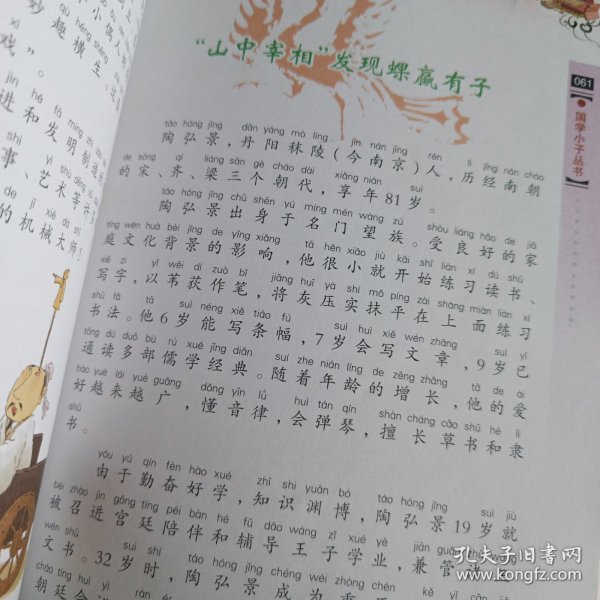 妙趣横生。
戏”。
进和发明制
事、艺术等
的机械大师!
“山中宰相”发现蜾蠃有子
061
国学小子丛书
táo hóng jǐng dān yáng mò líng jīn nán jīng rén lì jīng nán cháo
陶弘景,丹阳秣陵(今南京)人,历经南朝
de sòng qí liáng sān gè cháo dài xiǎng nián suì
的宋、齐、梁三个朝代,享年81岁。
táo hóng jǐng chū shēn yú míng mén wàng zú shòu liáng hǎo de jiā
陶弘景出身于名门望族。受良好的家
tíng wén huà bèi jǐng de yǐng xiǎng tā hěn xiǎo jiù kāi shǐ liàn xí dú shū
庭文化背景的影响,他很小就开始练习读书、
xiě zì yǐ wěi dí zuò bǐ jiāng huī yā shí mǒ píng zài shàng miàn liàn xí
写字,以苇荻作笔,将灰压实抹平在上面练习
shū fǎ tā suì néng xiě tiáo fú suì huì xiě wén zhāng suì yǐ
书法。他6岁能写条幅,7岁会写文章,9岁已
tōng dú duō bù rú xué jīng diǎn suí zhe nián líng de zēng zhǎng tā de ài
通读多部儒学经典。随着年龄的增长,他的爱
hào yuè lái yuè guǎng dǒng yīn lǜ huì tán qín shàn cháng cǎo shū hé lì
好越来越广,懂音律,会弹琴,擅长草书和隶
shū
书。
yóu yú qín fèn hào xué zhī shi yuān bó táo hóng jǐng suì jiù
由于勤奋好学,知识渊博,陶弘景19岁就
bèi zhào jìn gōng tíng péi bàn hé fǔ dǎo wáng zǐ xué yè jiān guǎn
被召进宫廷陪伴和辅导王子学业,兼管
wén shū suì shí táo hóng jǐng chéng wéi zhòng chén
文书。32岁时,陶弘景成为
cháo tíng huì
朝廷会
孔夫子旧书网
www.kongfz.com